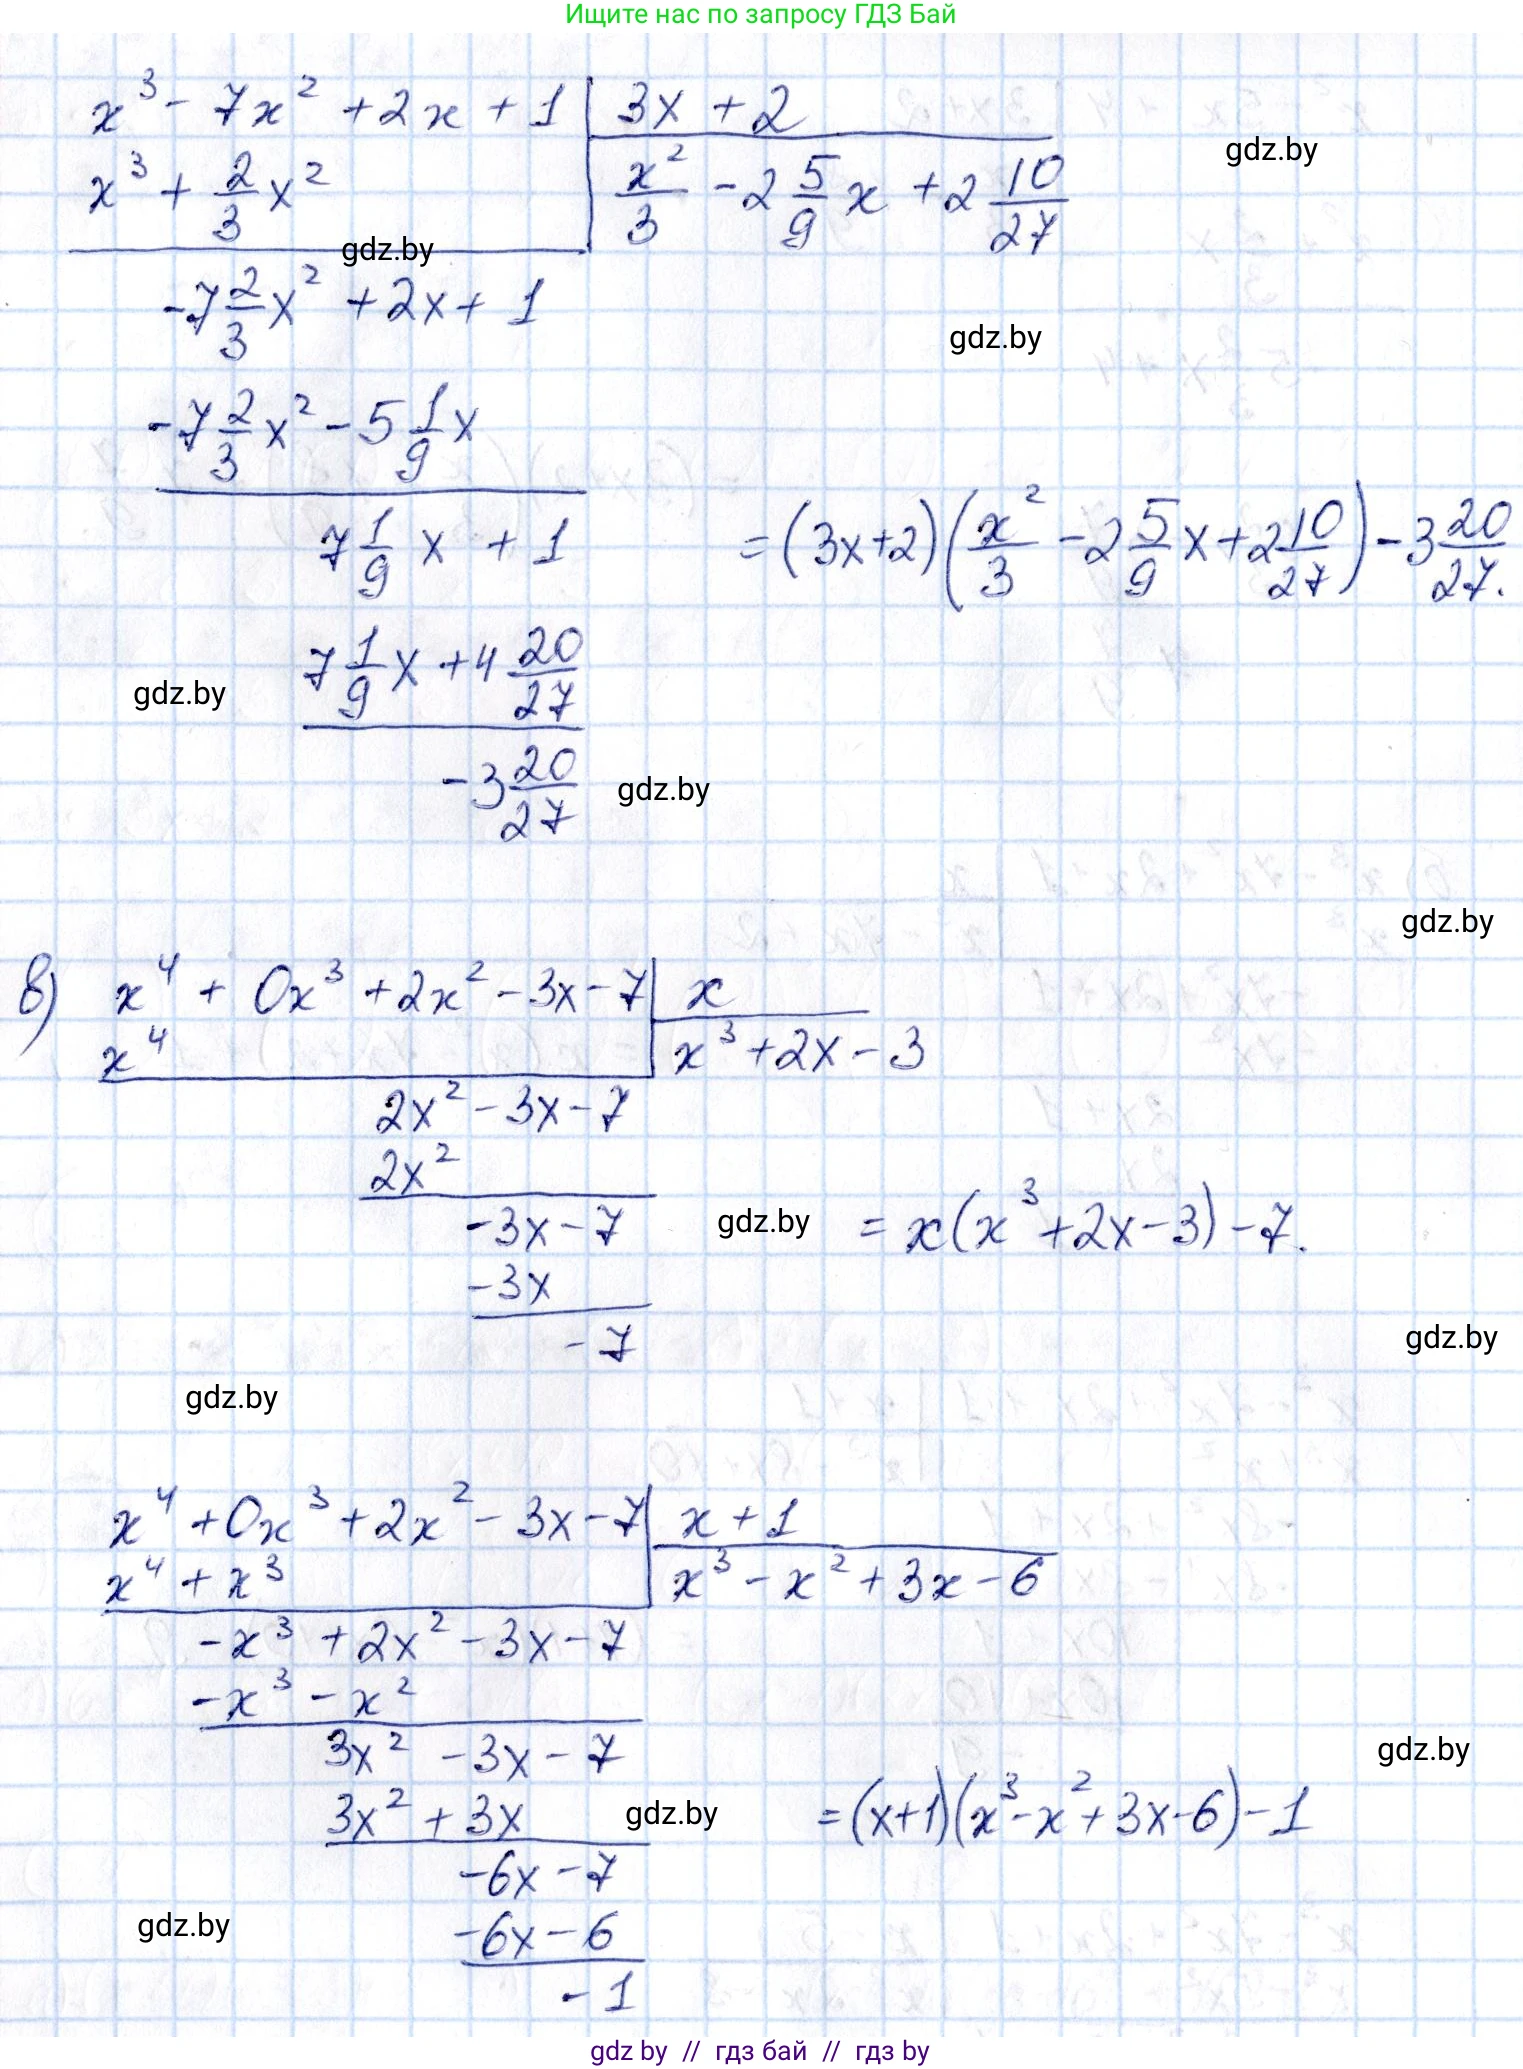 Ищите нас по запросу ГДЗ Бай
x³ - 7x² + 2x + 1 | 3x + 2
gdz.by
x³ + 2/3 x² | x²/3 - 2 5/9 x + 2 10/27
gdz.by
-7 2/3 x² + 2x + 1
gdz.by
-7 2/3 x² - 5 1/9 x
7 1/9 x + 1 = (3x+2)(x²/3 - 2 5/9 x + 2 10/27) - 3 20/27.
7 1/9 x + 4 20/27
gdz.by
-3 20/27
gdz.by
gdz.by
в) x⁴ + 0x³ + 2x² - 3x - 7 | x
x⁴ | x³ + 2x - 3
2x² - 3x - 7
2x²
-3x - 7 gdz.by = x(x³ + 2x - 3) - 7.
-3x
-7
gdz.by
gdz.by
x⁴ + 0x³ + 2x² - 3x - 7 | x + 1
x⁴ + x³ | x³ - x² + 3x - 6
-x³ + 2x² - 3x - 7
-x³ - x²
3x² - 3x - 7
gdz.by
3x² + 3x gdz.by = (x+1)(x³ - x² + 3x - 6) - 1
-6x - 7
gdz.by
-6x - 6
-1
gdz by // гдз бай // гдз by